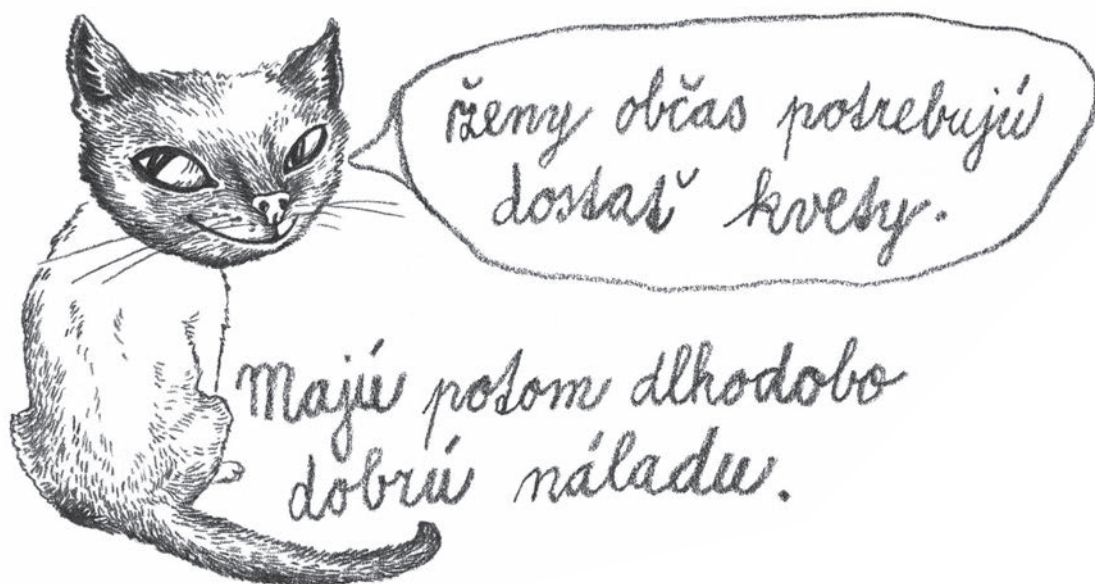 ženy občas potrebujú
dostať kvety.
Majú potom dlhodobo
dobrú náladu.